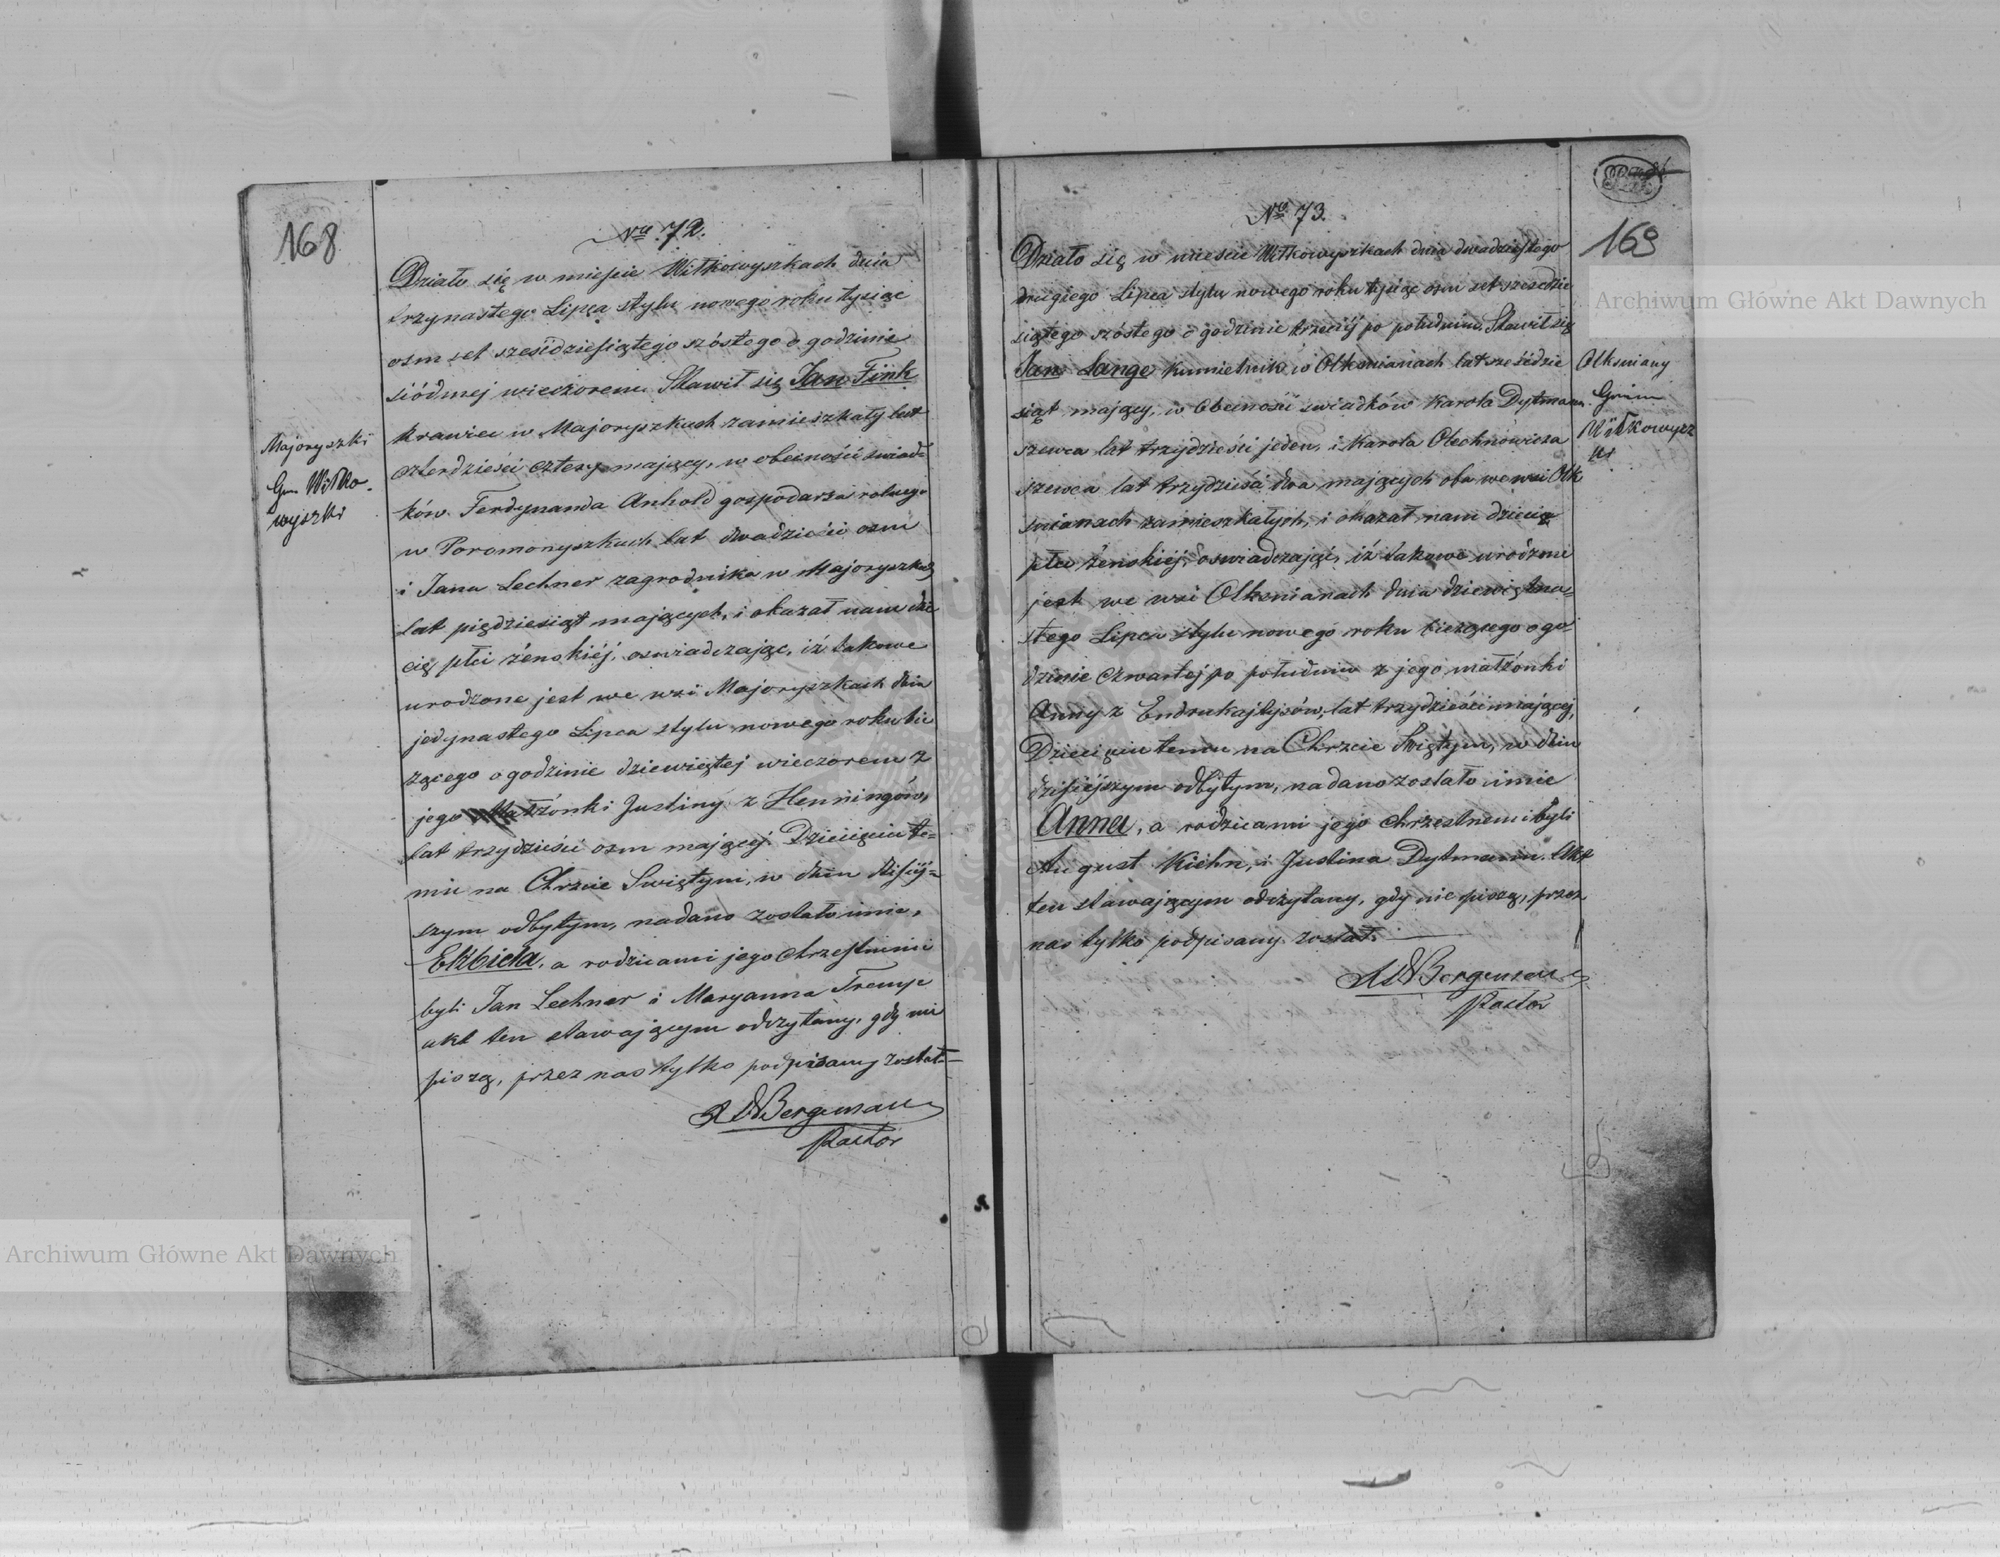 168
Majoryszki
Gm. Wiłko-
wyszki
No. 72.
Działo się w mieście Wiłkowyszkach dnia
trzynastego Lipca stylu nowego roku tysiąc
osmset sześćdziesiątego szóstego o godzinie
siódmej wieczorem. Stawił się Jan Fink
krawiec w Majoryszkach zamieszkały lat
czterdzieści cztery mający, w obecności świad-
ków Ferdynanda Anhold gospodarza rolnego
w Poromonyszkach lat dwadzieści osm
i Jana Lechner zagrodnika w Majoryszkach
lat pięćdziesiąt mających, i okazał nam dzie
cię płci żeńskiéj, oswiadczając, iż takowe
urodzone jest we wsi Majoryszkach dnia
jedynastego Lipca stylu nowego roku bie
żącego o godzinie dziewiątej wieczorem z
jego Małżonki Justiny z Henningów,
lat trzydzieści osm mającéj. Dziecięciu te-
mu na Chrzcie Swiętym, w dniu dzisiéj-
szym odbytym, nadano zostało imie,
Elżbieta, a rodzicami jego chrzestnemi
byli Jan Lechner i Maryanna Tremp
akt ten stawającym odczytany, gdy nie
piszą, przez nas tylko podpisany został.
Bergmann
Pastor
No. 73.
Działo się w mieście Wiłkowyszkach dnia dwudziestego
drugiego Lipca stylu nowego roku tysiąc osm set sześćdzie
siątego szóstego o godzinie trzeciéj po południu. Stawił się
Jan Lange kumietnik w Olksnianach lat sześćdzie
siąt mający, w obecności świadków Karola Dytmann
szewca lat trzydzieści jeden i Karola Olechnowicza
szewca lat trzydzieści dwa mających obu we wsi Olk
snianach zamieszkałych, i okazał nam dziecię
płci żeńskiéj, oswiadczając, iż takowe urodzone
jest we wsi Olksnianach dnia dziewiętna-
stego Lipca stylu nowego roku bieżącego o go-
dzinie czwartej po południu z jego małżonki
Anny z Endrukajtysów, lat trzydzieści mającej,
Dziecięciu temu na Chrzcie Świętym, w dniu
dzisiéjszym odbytym, nadano zostało imie
Anna, a rodzicami jego chrzestnemi byli
August Kiehn, i Justina Dytmann. Akt
ten stawającym odczytany, gdy nie piszą, przez
nas tylko podpisany został.
Bergmann
Pastor
169
Olksniany
Gmin
Wiłkowysz
ki
Archiwum Główne Akt Dawnych
Archiwum Główne Akt Dawnych